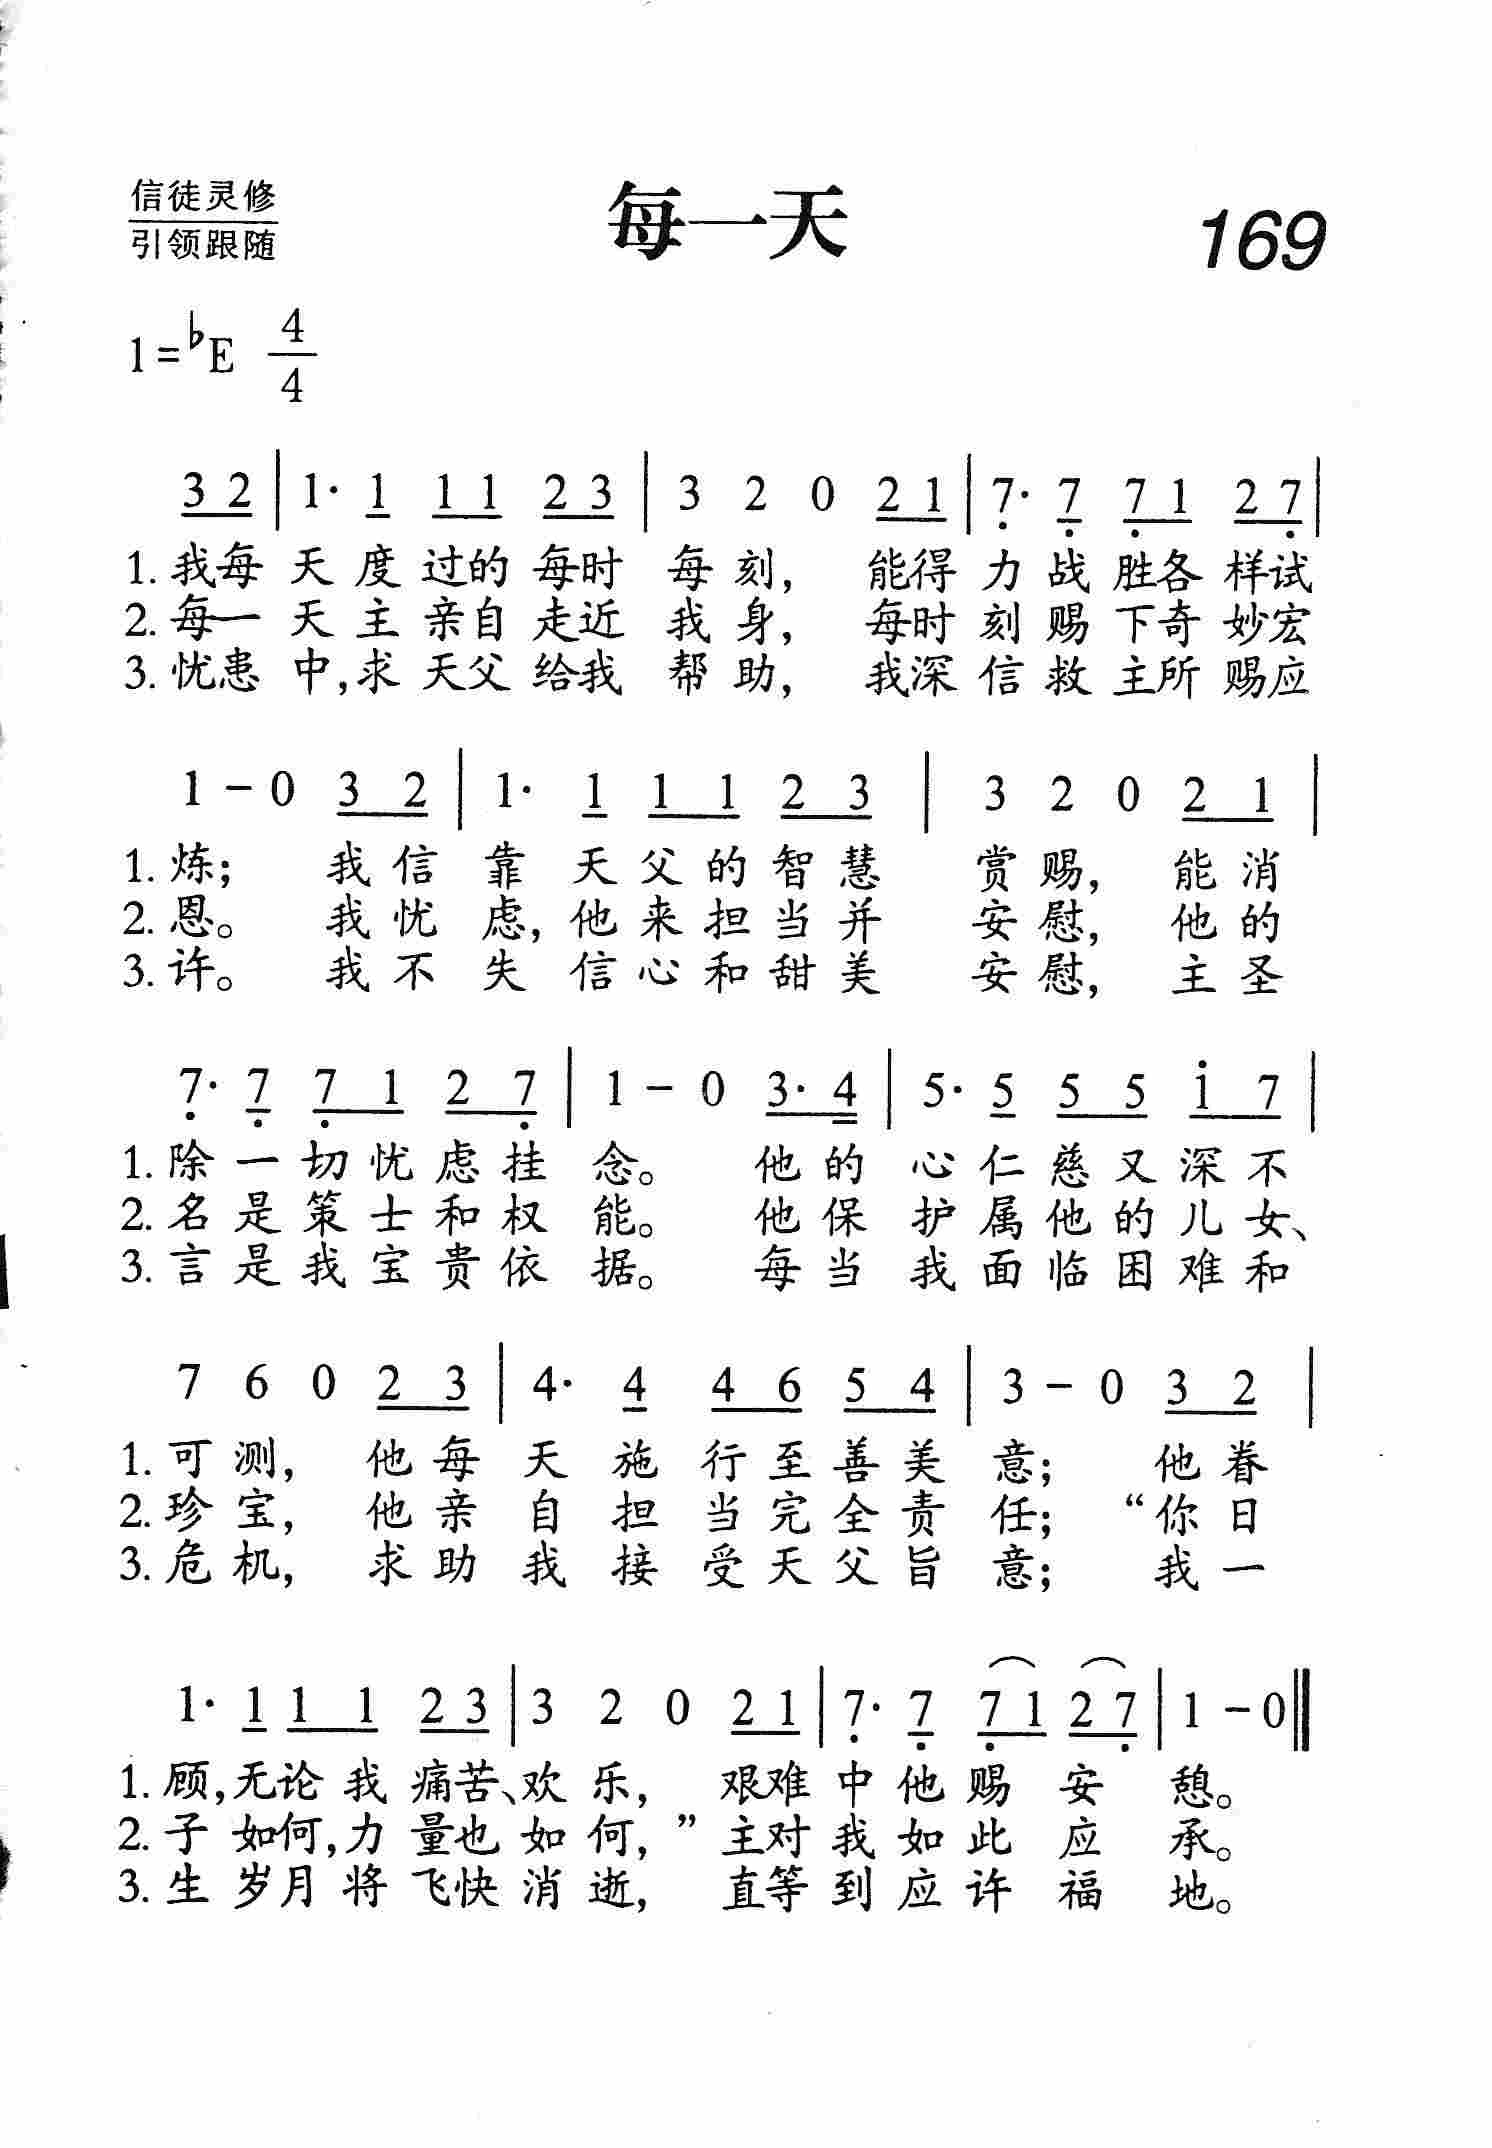 信徒灵修
引领跟随
每一天
169
1=♭E 4/4
3 2 | 1· 1 1 1 2 3 | 3 2 0 2 1 | 7̣· 7̣ 7̣ 1 2 7̣ |
1. 我每 天 度 过的 每时 每 刻， 能得 力 战 胜各 样试
2. 每一 天 主 亲自 走近 我 身， 每时 刻 赐 下奇 妙宏
3. 忧患 中，求 天父 给我 帮 助， 我深 信 救 主所 赐应
1 - 0 3 2 | 1· 1 1 1 2 3 | 3 2 0 2 1 |
1. 炼； 我 信 靠 天 父 的 智 慧 赏 赐， 能 消
2. 恩。 我 忧 虑，他 来 担 当 并 安 慰， 他 的
3. 许。 我 不 失 信 心 和 甜 美 安 慰， 主 圣
7̣· 7̣ 7̣ 1 2 7̣ | 1 - 0 3· 4 | 5· 5 5 5 i 7 |
1. 除 一 切 忧 虑 挂 念。 他 的 心 仁 慈 又 深 不
2. 名 是 策 士 和 权 能。 他 保 护 属 他 的 儿 女、
3. 言 是 我 宝 贵 依 据。 每 当 我 面 临 困 难 和
7 6 0 2 3 | 4· 4 4 6 5 4 | 3 - 0 3 2 |
1. 可 测， 他 每 天 施 行 至 善 美 意； 他 眷
2. 珍 宝， 他 亲 自 担 当 完 全 责 任； “你 日
3. 危 机， 求 助 我 接 受 天 父 旨 意； 我 一
1· 1 1 1 2 3 | 3 2 0 2 1 | 7̣· 7̣ 7̣ 1 2 7̣ | 1 - 0 ‖
1. 顾，无论 我 痛苦、欢 乐， 艰难 中 他 赐 安 憩。
2. 子 如何，力 量也 如 何，” 主对 我 如 此 应 承。
3. 生 岁月 将 飞快 消 逝， 直等 到 应 许 福 地。